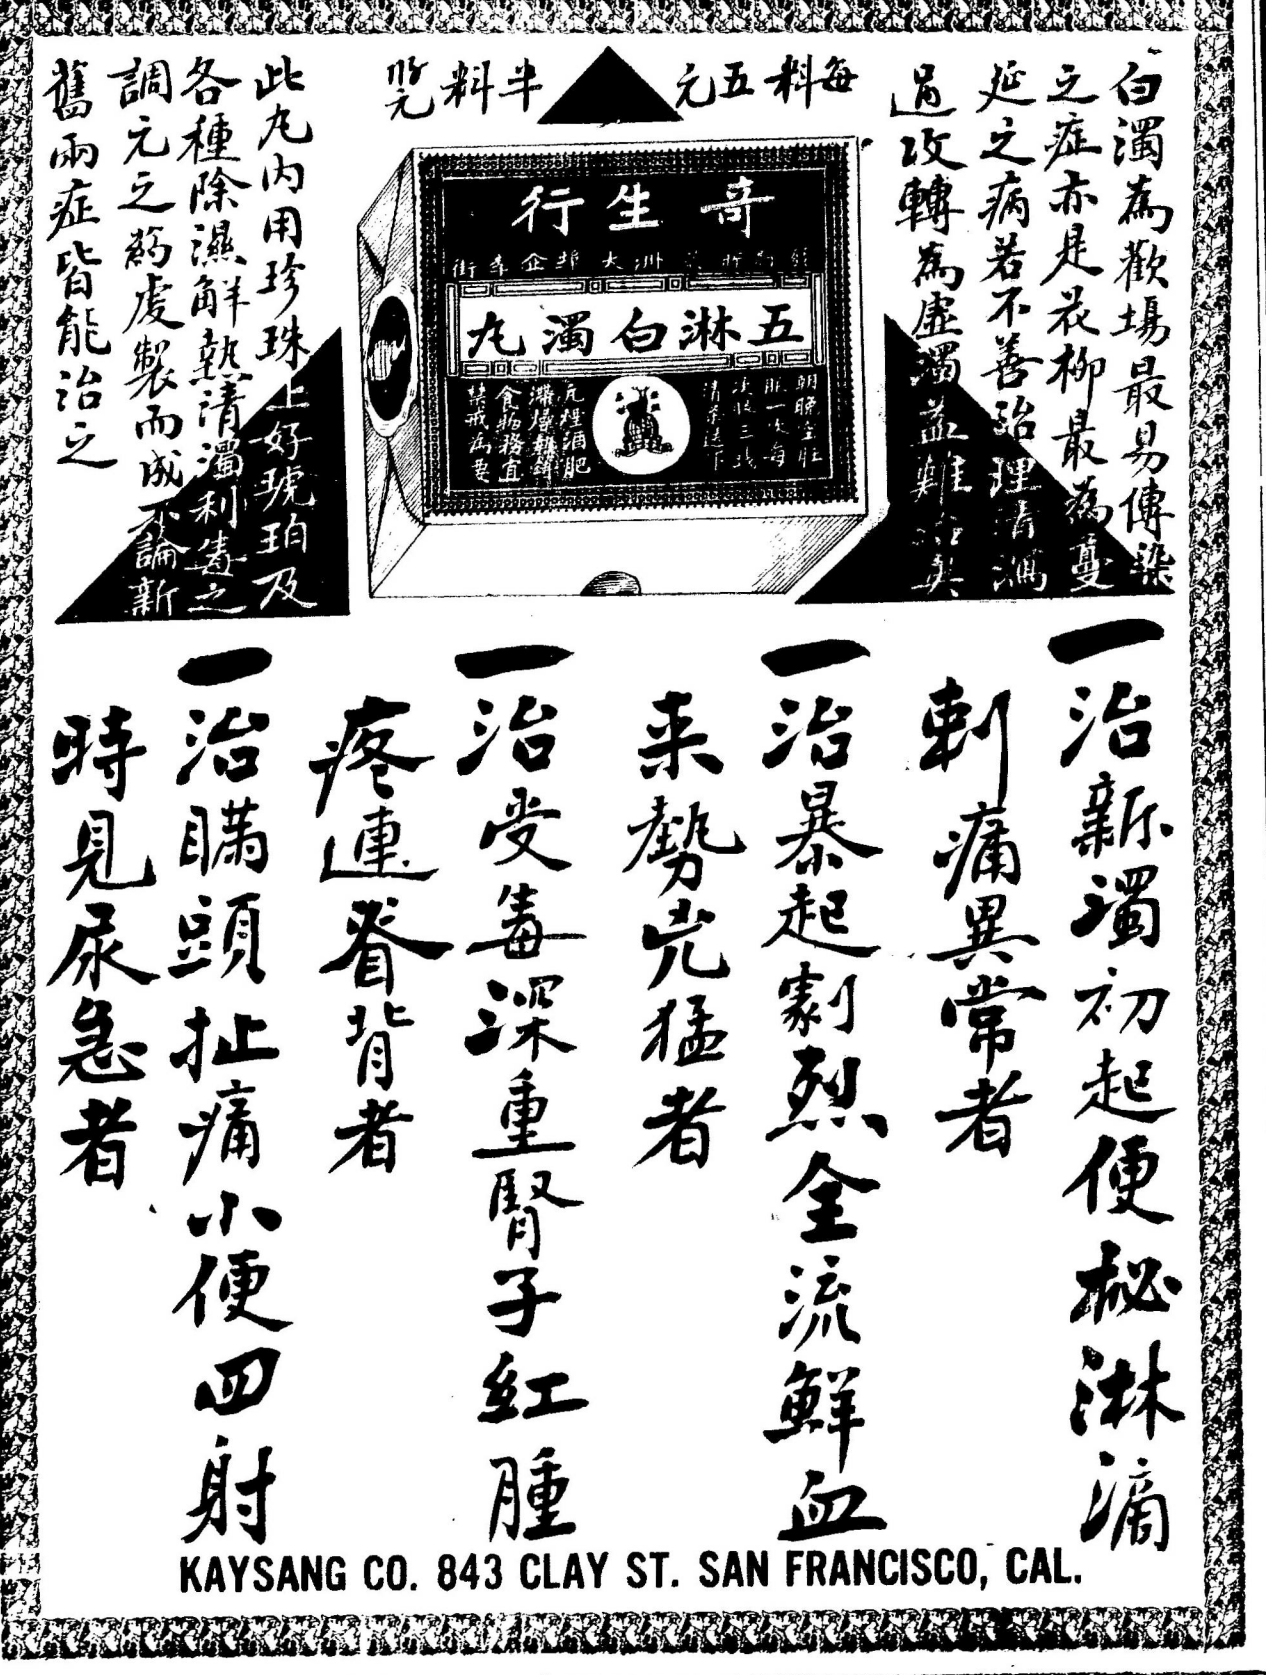 白濁為歡場最易傳染
之症亦是花柳最為蔓
延之病若不善治理清濁
過攻轉為虛濁益難治矣
每料五元
半料
元
奇生行
五淋白濁丸
朝晚空肚
服一次每
次服三錢
清茶送下
煎炒煙酒肥
食物務宜
禁戒為要
此丸內用珍珠上好琥珀及
各種除濕解熱清濁利遺之
調元之藥虔製而成不論新
舊兩症皆能治之
一治新濁初起便秘淋滴
刺痛異常者
一治暴起劇烈全流鮮血
来勢兇猛者
一治受毒深重腎子紅腫
疼連脊背者
一治瞞頭扯痛小便四射
時見尿急者
KAYSANG CO. 843 CLAY ST. SAN FRANCISCO, CAL.